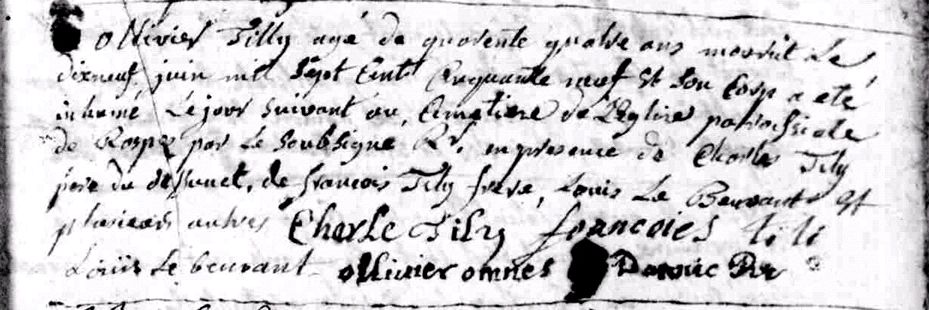 ollivier Tilly agé de quarente quatre ans mourut Le
dixneuf juin mil sept Cent Cinquante neuf Et son Corp a eté
inhumé Le jour suivant au Cimetiere de L'Eglise paroissiale
de Rospez par Le Soubsigné Rr. en presence de Charles Tily
pere du deffunct, de francois Tily frere, Louis Le Beuvant Et
plusieurs autres Charle Tily francoies tili
Louis Le beuvant ollivier omnes Rr